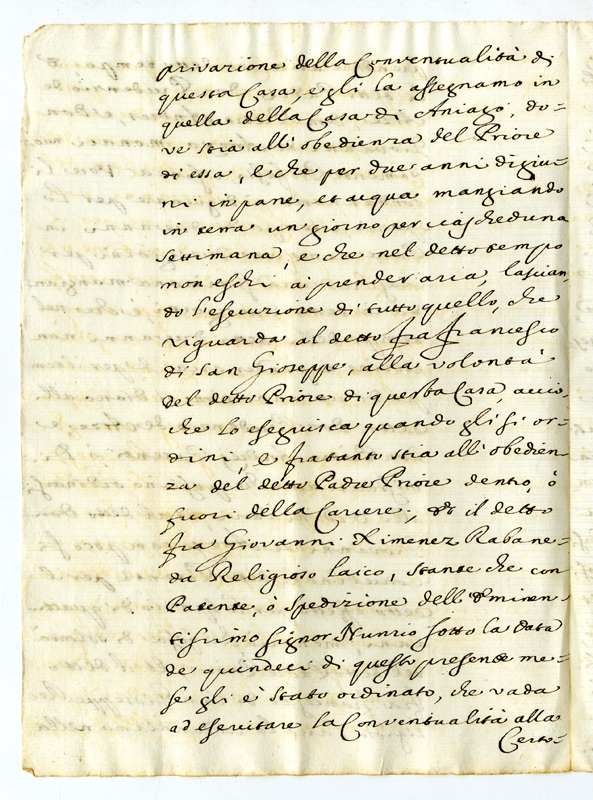 privazione della Conventualità di
questa Casa, e gli la assegnamo in
quella della Casa di Aniago, do=
ve stia all'obedienza del Priore
di essa, e che per due anni digiu=
ni in pane, et acqua mangiando
in terra un giorno per ciascheduna
settimana, e che nel detto tempo
non eschi à prender aria, lascian,
do l'esecuzione di tutto quello, che
riguarda al detto fra francesco
di San Gioseppe, alla volontà
del detto Priore di questa Casa, acciò,
che lo eseguisca quando gli si or=
dini, e fratanto stia all'obedien
za del detto Padre Priore dentro, ò
fuori della Carcere., et il detto
fra Giovanni Ximenez Rabane=
da Religioso laico, stante che con
Patente, ò spedizione dell'Eminen=
tissimo Signor Nunzio sotto la data
de quindeci di questo presente me=
se gli è stato ordinato, che vada
ad esercitare la Conventualità alla
Certo=